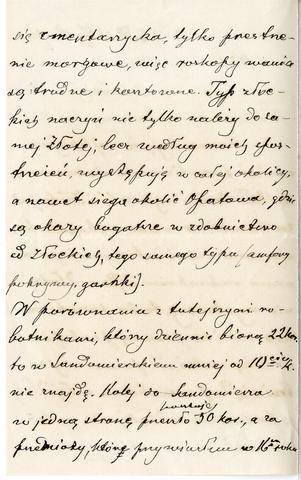 się cmentarzyska, tylko przestrze-
nie morgowe, więc roskopywania
są trudne i kosztowne. Typ złoc-
kich naczyń nie tylko należy do sa-
mej Złotej, lecz według moich spos-
trzeżeń, występują w całej okolicy,
a nawet sięga okolic Opatowa, gdzie
są okazy bogatsze w zdobnictwo
od Złockich, tego samego typu (amfory
pokrywy, garnki).
W porównaniu z tutejszymi ro-
botnikami, który dziennie biorą 22 kor.
to w Sandomierskiem mniej od 10
nie znajdę. Kolej do Sandomierza
w jedną stronę kosztuje 50 kor., a za
przedmioty, które przywiozłem w